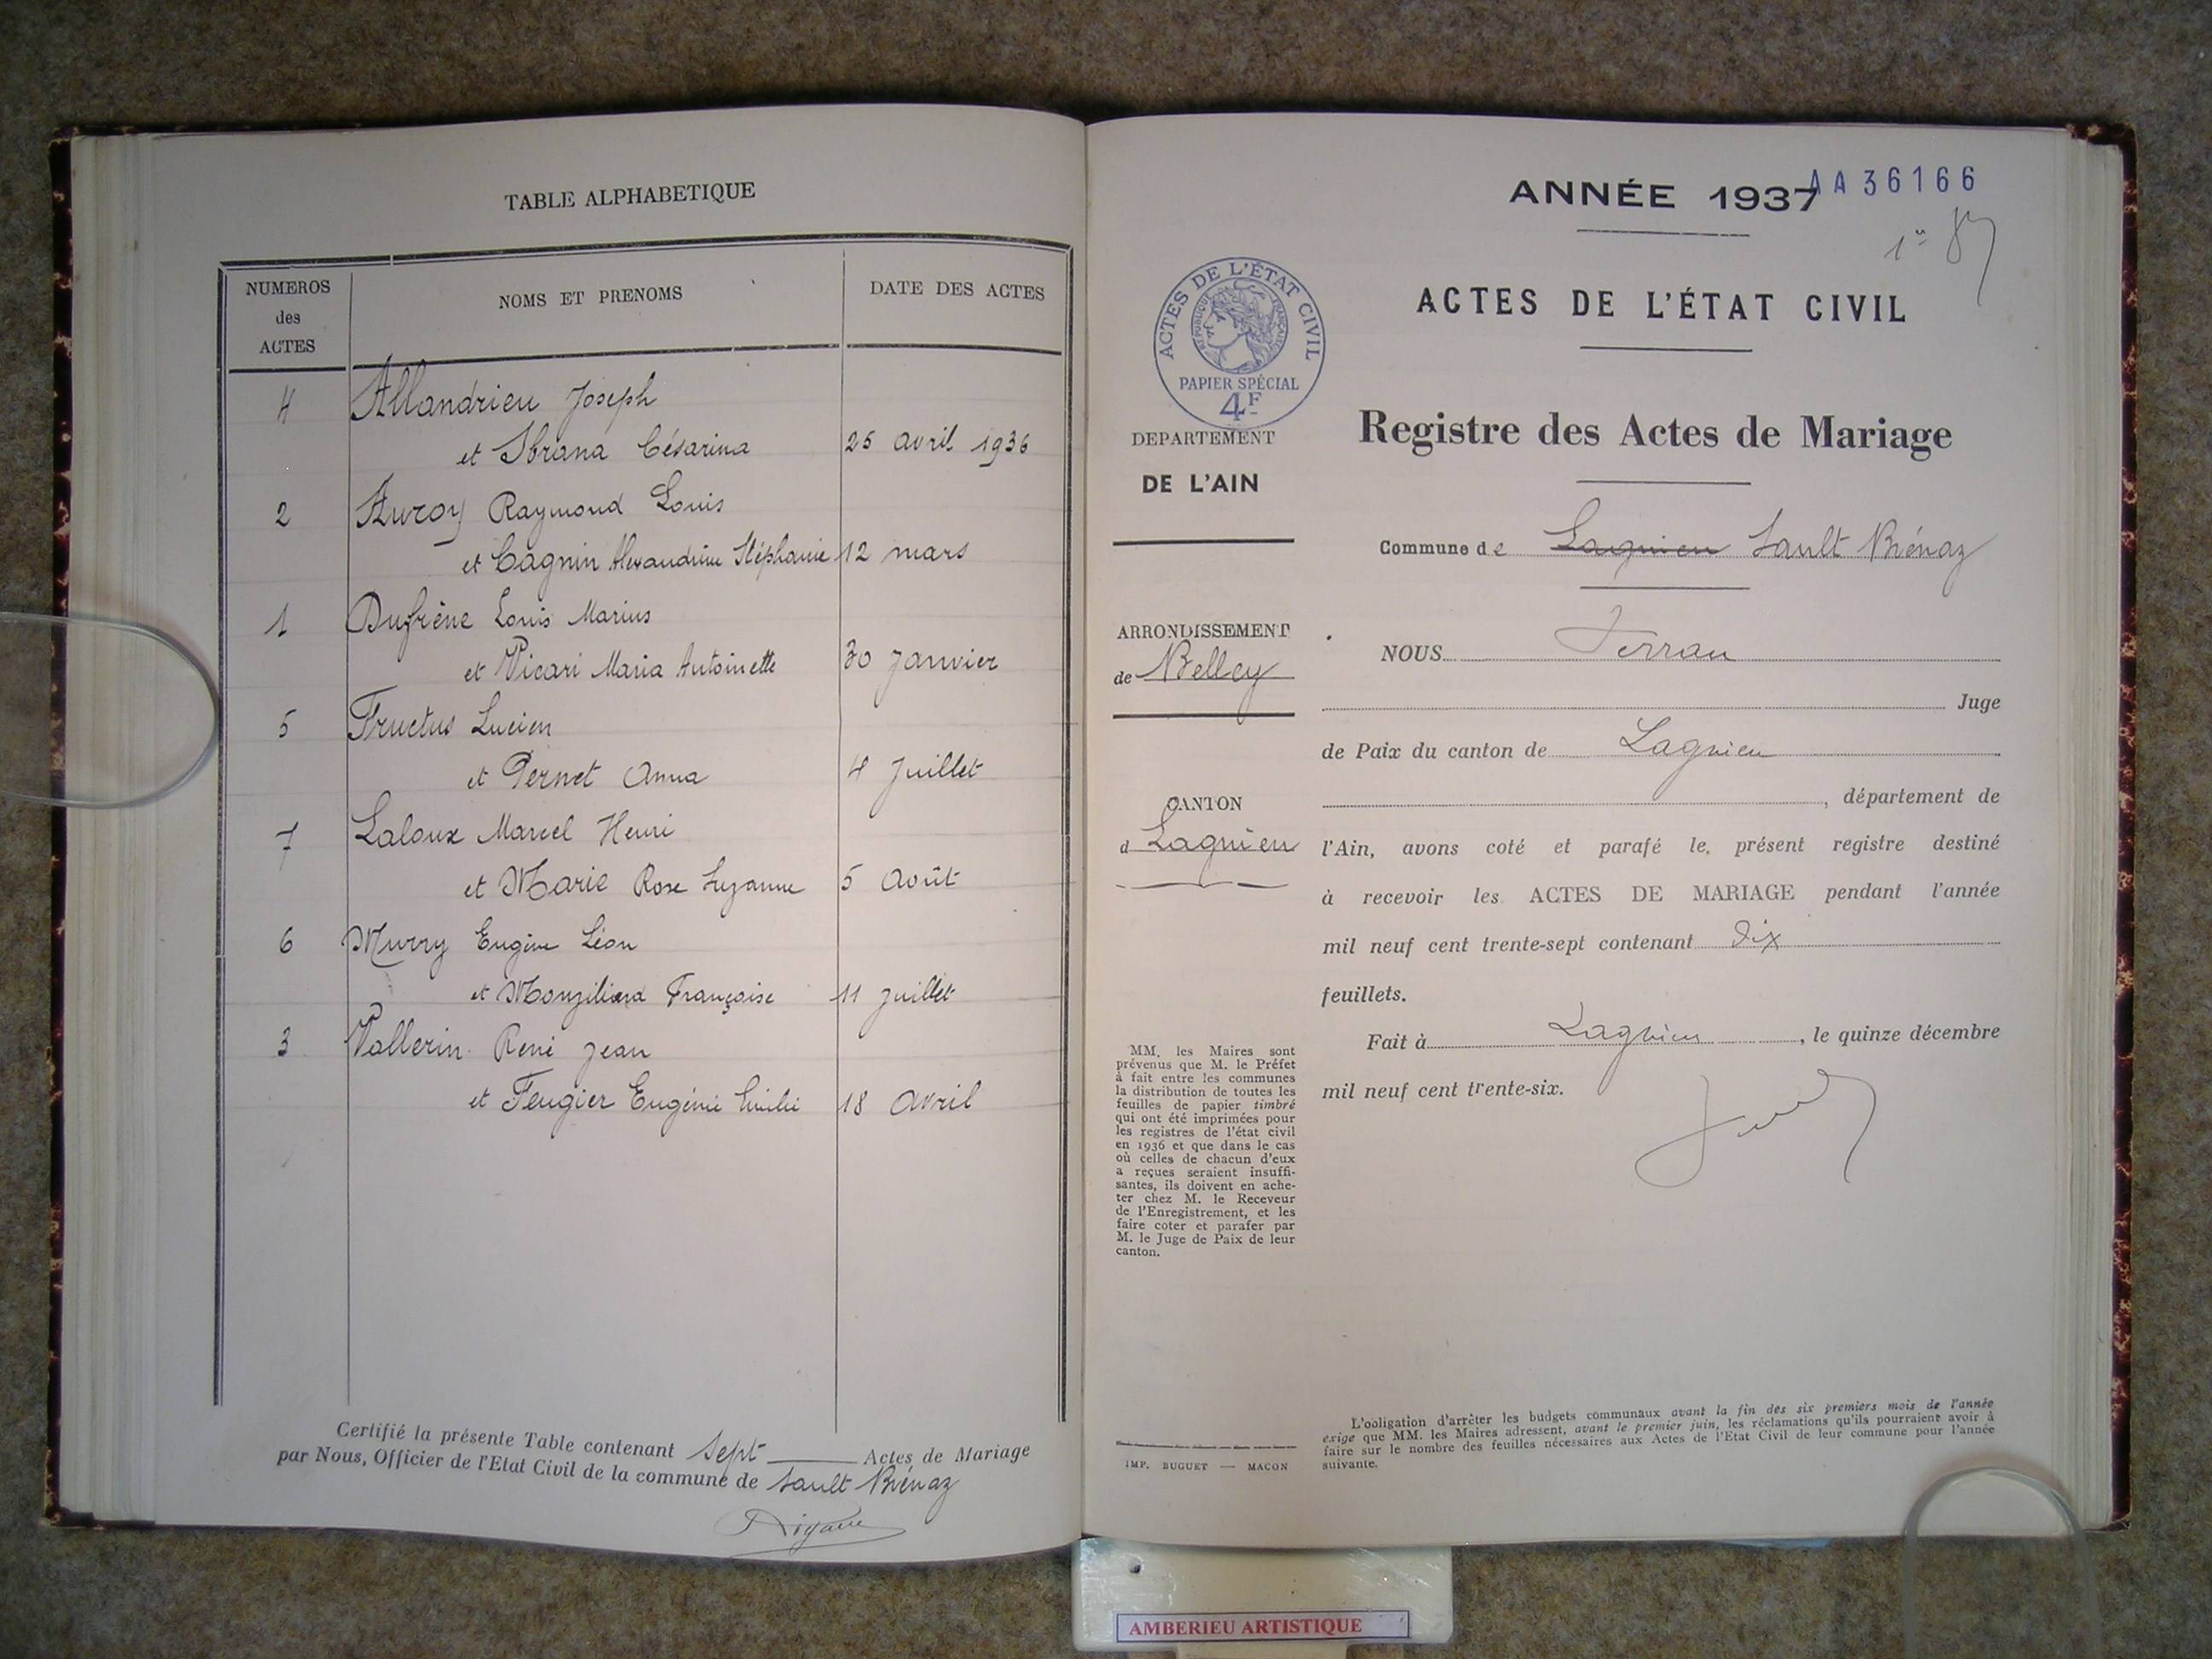 TABLE ALPHABETIQUE
NUMEROS des ACTES
NOMS ET PRENOMS
DATE DES ACTES
4 Allandrieu Joseph
et Sbrana Césarina 25 avril 1936
2 Auroy Raymond Louis
et Cagnin Alexandrine Stéphanie 12 mars
1 Dufrène Louis Marius
et Vicari Maria Antoinette 30 janvier
5 Fructus Lucien
et Pernet Anna 4 juillet
7 Laloux Marcel Henri
et Marie Rose Suzanne 5 août
6 Murry Eugène Léon
et Françoise 11 juillet
3 Vallerin René Jean
et Feugier Eugénie Emilie 18 avril
Certifié la présente Table contenant sept Actes de Mariage
par Nous, Officier de l'Etat Civil de la commune de Sault Brénaz
ANNÉE 1937
AA 36166
ACTES DE L'ÉTAT CIVIL
ACTES DE L'ÉTAT CIVIL
RÉPUBLIQUE FRANÇAISE
PAPIER SPÉCIAL
4F
DEPARTEMENT
DE L'AIN
Registre des Actes de Mariage
Commune de Lagnieu Sault Brénaz
ARRONDISSEMENT
de Belley
CANTON
d Lagnieu
NOUS
Juge
de Paix du canton de Lagnieu
, département de
l'Ain, avons coté et parafé le présent registre destiné
à recevoir les ACTES DE MARIAGE pendant l'année
mil neuf cent trente-sept contenant dix
feuillets.
Fait à Lagnieu, le quinze décembre
mil neuf cent trente-six.
MM. les Maires sont
prévenus que M. le Préfet
à fait entre les communes
la distribution de toutes les
feuilles de papier timbré
qui ont été imprimées pour
les registres de l'état civil
en 1936 et que dans le cas
où celles de chacun d'eux
a reçues seraient insuffi-
santes, ils doivent en ache-
ter chez M. le Receveur
de l'Enregistrement, et les
faire coter et parafer par
M. le Juge de Paix de leur
canton.
IMP. BUGUET — MACON
L'obligation d'arrêter les budgets communaux avant la fin des six premiers mois de l'année
exige que MM. les Maires adressent, avant le premier juin, les réclamations qu'ils pourraient avoir à
faire sur le nombre des feuilles nécessaires aux Actes de l'Etat Civil de leur commune pour l'année
suivante.
AMBERIEU ARTISTIQUE